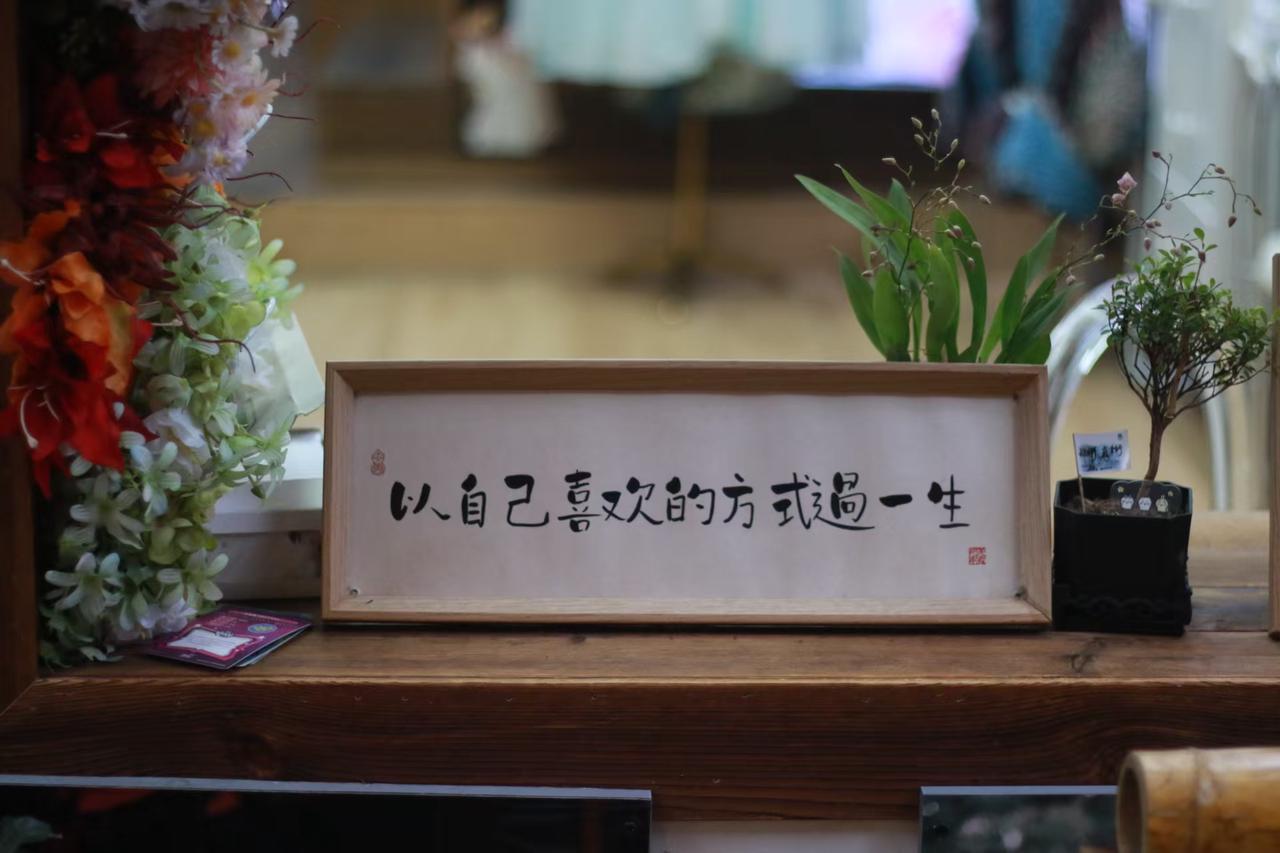 以自己喜欢的方式過一生